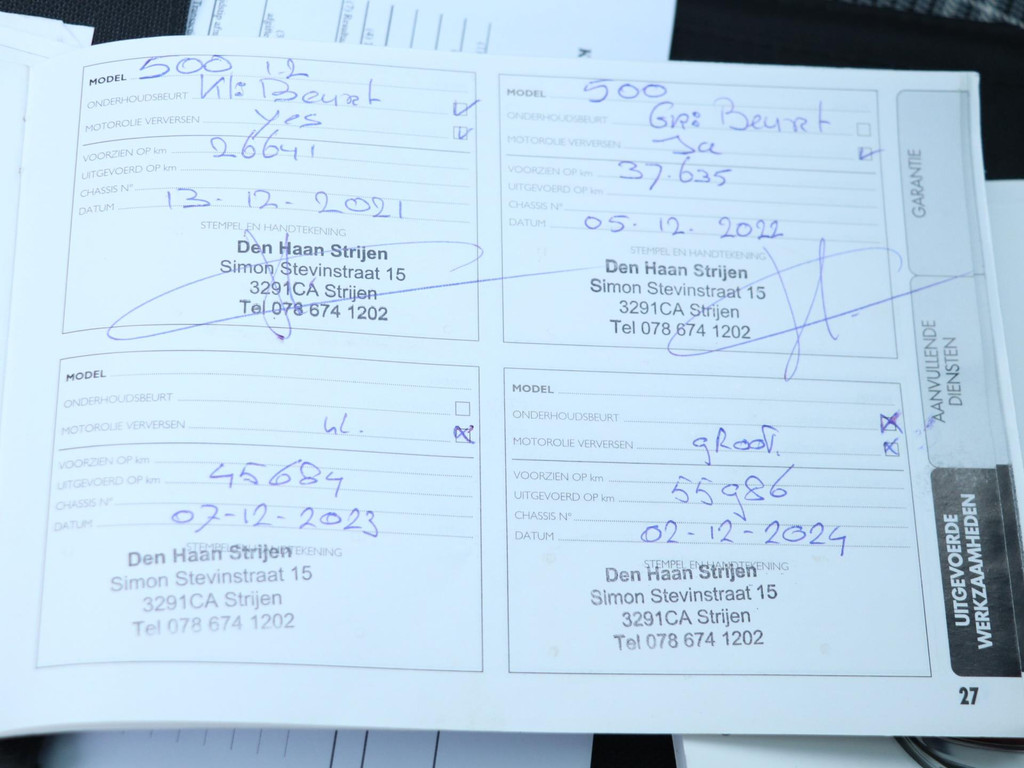 MODEL 500 1.2
ONDERHOUDSBEURT Kl: Beurt
MOTOROLIE VERVERSEN Yes
VOORZIEN OP km 26641
UITGEVOERD OP km
CHASSIS N°
DATUM 13-12-2021
STEMPEL EN HANDTEKENING
Den Haan Strijen
Simon Stevinstraat 15
3291CA Strijen
Tel 078 674 1202
MODEL 500
ONDERHOUDSBEURT Gr: Beurt
MOTOROLIE VERVERSEN Ja
VOORZIEN OP km 37.635
UITGEVOERD OP km
CHASSIS N°
DATUM 05.12.2022
STEMPEL EN HANDTEKENING
Den Haan Strijen
Simon Stevinstraat 15
3291CA Strijen
Tel 078 674 1202
MODEL
ONDERHOUDSBEURT
MOTOROLIE VERVERSEN kl.
VOORZIEN OP km
UITGEVOERD OP km 45684
CHASSIS N°
DATUM 07-12-2023
STEMPEL EN HANDTEKENING
Den Haan Strijen
Simon Stevinstraat 15
3291CA Strijen
Tel 078 674 1202
MODEL
ONDERHOUDSBEURT
MOTOROLIE VERVERSEN gRooT.
VOORZIEN OP km
UITGEVOERD OP km 55986
CHASSIS N°
DATUM 02-12-2024
STEMPEL EN HANDTEKENING
Den Haan Strijen
Simon Stevinstraat 15
3291CA Strijen
Tel 078 674 1202
GARANTIE
AANVULLENDE
DIENSTEN
UITGEVOERDE
WERKZAAMHEDEN
27